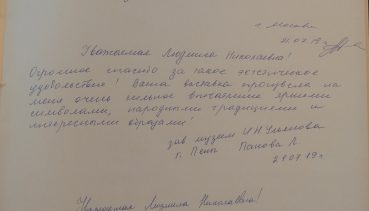 г. Москва
21.07.19г.
Уважаемая Людмила Николаевна!
Огромное спасибо за такое эстетическое
удовольствие! Ваша выставка произвела на
меня очень сильное впечатление яркими
символами, народными традициями и
интересными образами!
зав. музеем И.Н. Ульянова
г. Пенза Панова Л.
21.07.19г.
Уважаемая Людмила Николаевна!